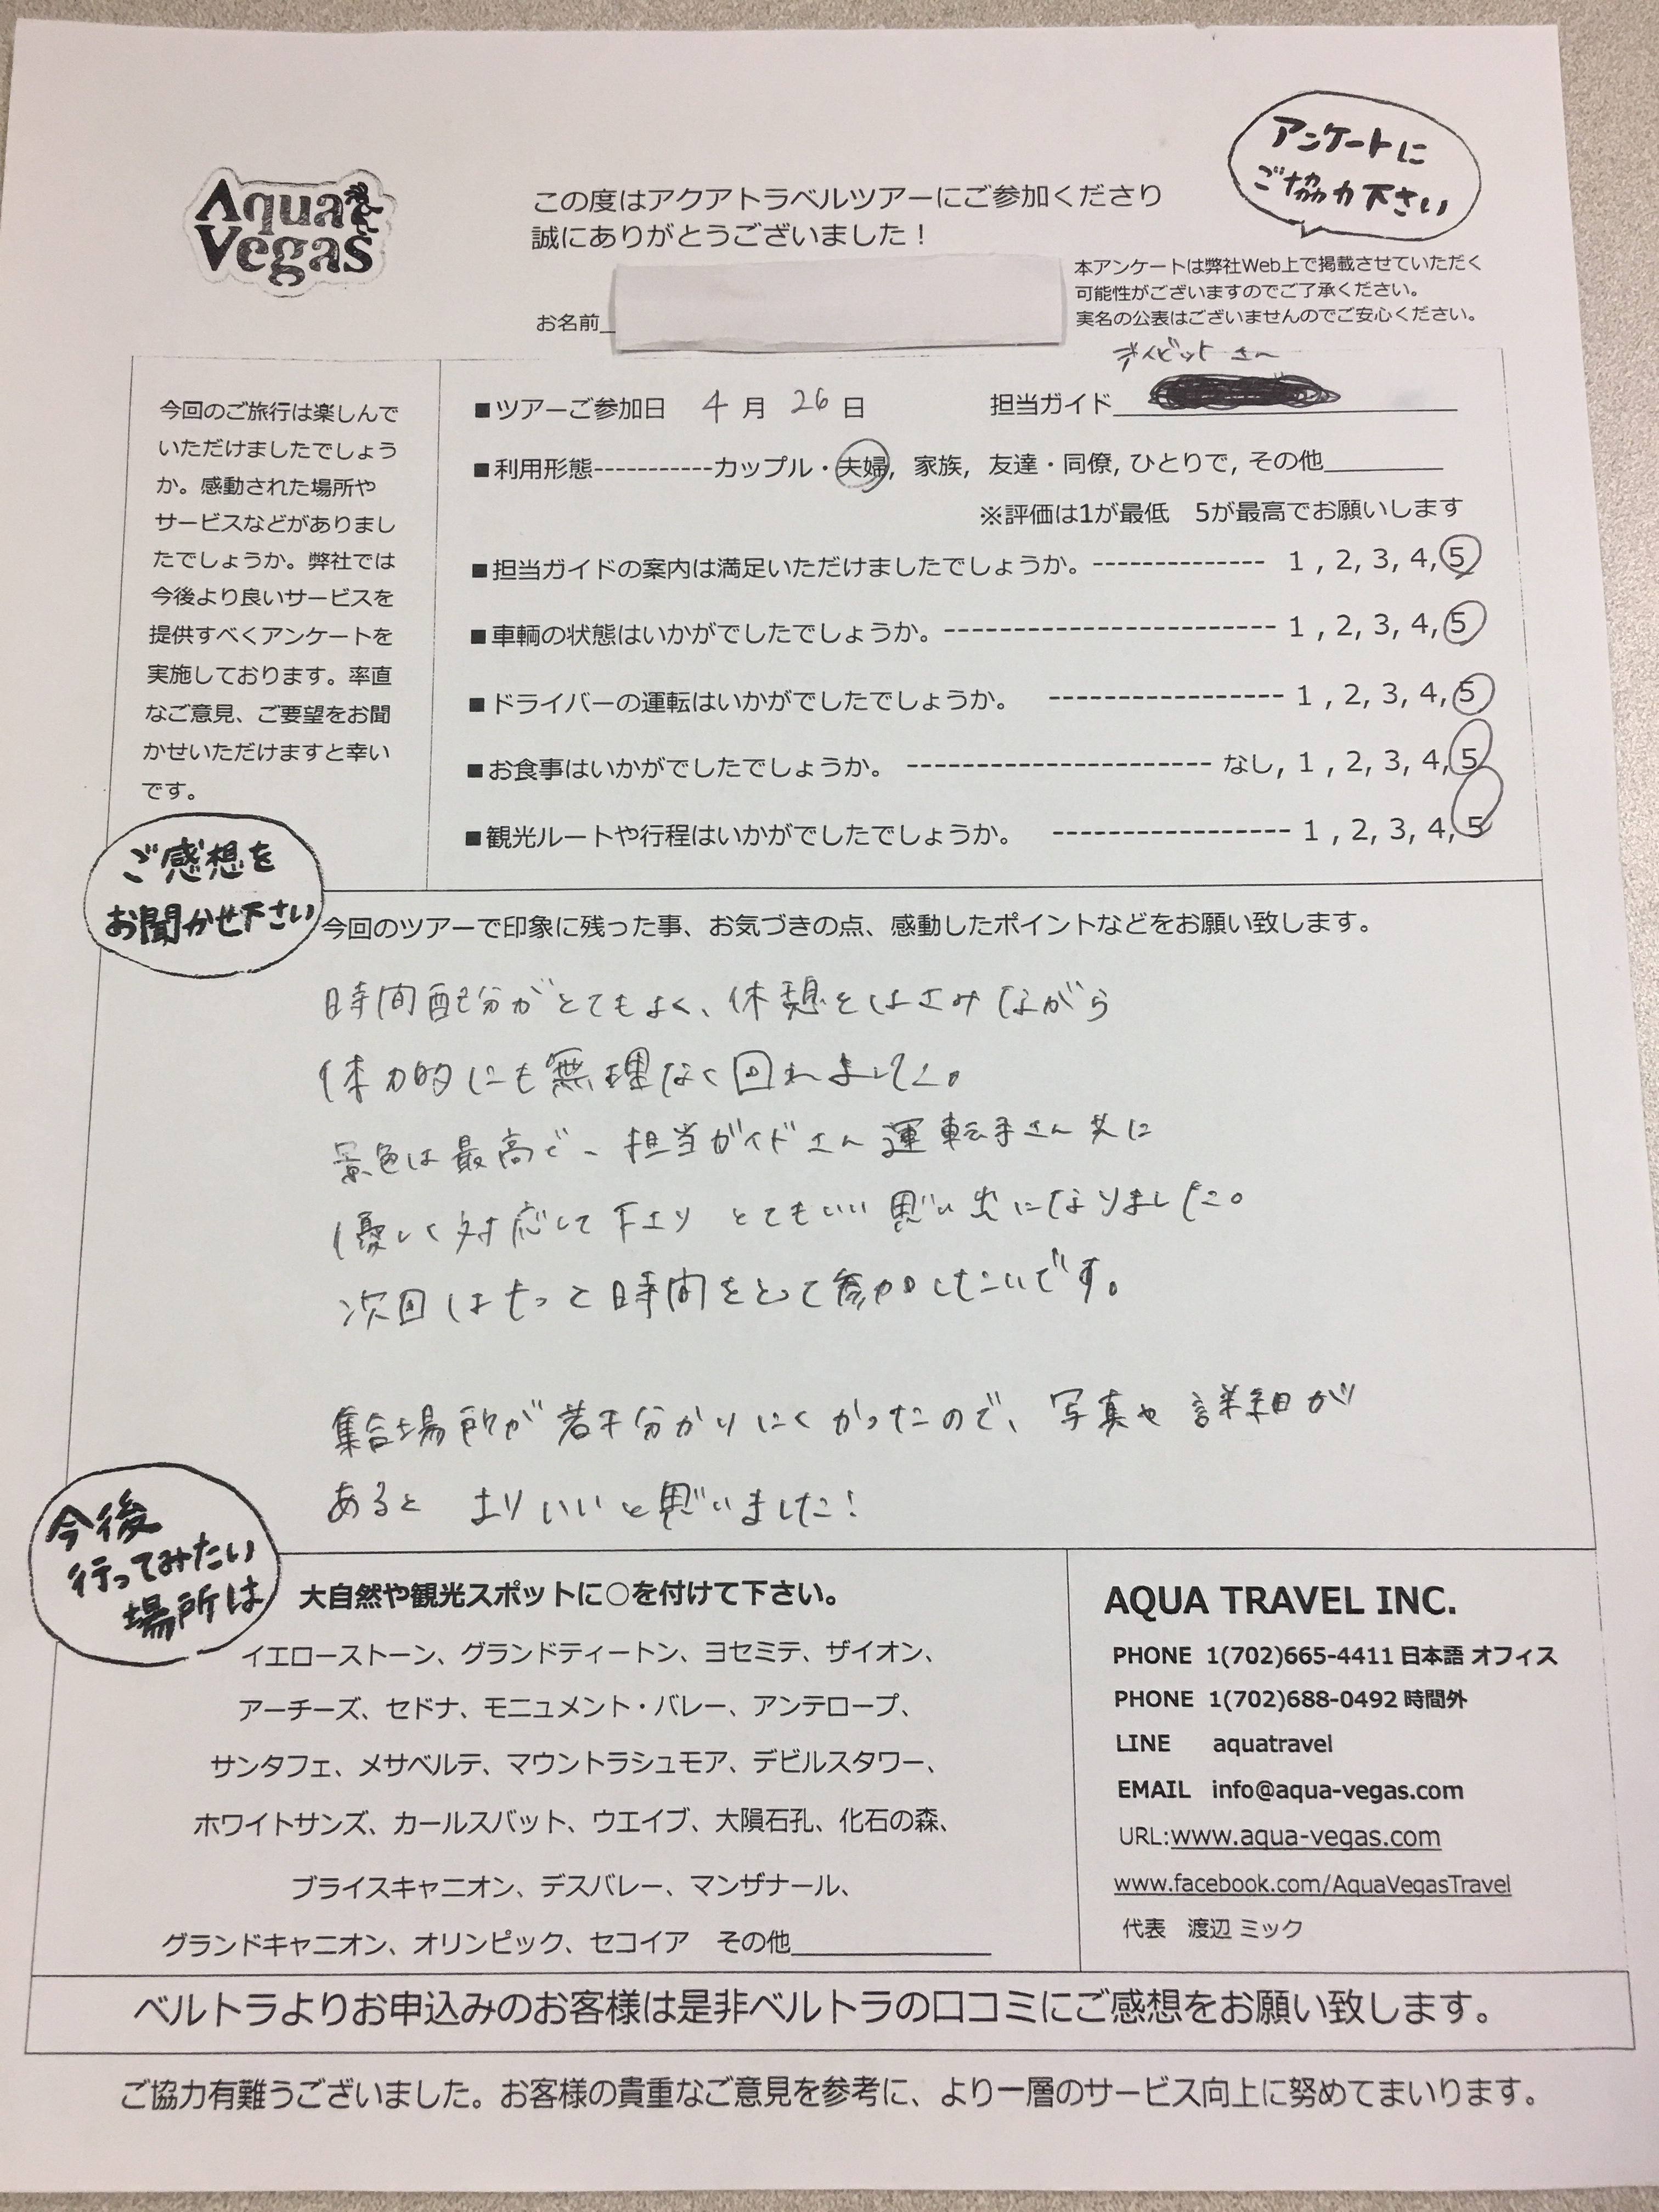 アンケートに
ご協力下さい
Aqua
Vegas
この度はアクアトラベルツアーにご参加くださり
誠にありがとうございました！
本アンケートは弊社Web上で掲載させていただく
可能性がございますのでご了承ください。
実名の公表はございませんのでご安心ください。
お名前
今回のご旅行は楽しんで
いただけましたでしょう
か。感動された場所や
サービスなどがありまし
たでしょうか。弊社では
今後より良いサービスを
提供すべくアンケートを
実施しております。率直
なご意見、ご要望をお聞
かせいただけますと幸い
です。
デイビットさん
■ツアーご参加日 4月26日 担当ガイド
■利用形態-----------カップル・夫婦, 家族, 友達・同僚, ひとりで, その他________
※評価は1が最低 5が最高でお願いします
■担当ガイドの案内は満足いただけましたでしょうか。-------------- 1 , 2, 3, 4, 5
■車輌の状態はいかがでしたでしょうか。--------------------------- 1 , 2, 3, 4, 5
■ドライバーの運転はいかがでしたでしょうか。 ------------------- 1 , 2, 3, 4, 5
■お食事はいかがでしたでしょうか。 ------------------------- なし, 1 , 2, 3, 4, 5
■観光ルートや行程はいかがでしたでしょうか。 ------------------- 1 , 2, 3, 4, 5
ご感想を
お聞かせ下さい
今回のツアーで印象に残った事、お気づきの点、感動したポイントなどをお願い致します。
時間配分がとてもよく、休憩をはさみながら
体力的にも無理なく回れました。
景色は最高で、担当ガイドさん運転手さん共に
優しく対応して下さり とてもいい思い出になりました。
次回はもっと時間をとって参加したいです。
集合場所が若干分かりにくかったので、写真や詳細が
あると よりいいと思いました！
今後
行ってみたい
場所は
大自然や観光スポットに○を付けて下さい。
イエローストーン、グランドティートン、ヨセミテ、ザイオン、
アーチーズ、セドナ、モニュメント・バレー、アンテロープ、
サンタフェ、メサベルテ、マウントラシュモア、デビルスタワー、
ホワイトサンズ、カールスバット、ウエイブ、大隕石孔、化石の森、
ブライスキャニオン、デスバレー、マンザナール、
グランドキャニオン、オリンピック、セコイア その他______________
AQUA TRAVEL INC.
PHONE 1(702)665-4411 日本語 オフィス
PHONE 1(702)688-0492 時間外
LINE aquatravel
EMAIL info@aqua-vegas.com
URL:www.aqua-vegas.com
www.facebook.com/AquaVegasTravel
代表 渡辺 ミック
ベルトラよりお申込みのお客様は是非ベルトラの口コミにご感想をお願い致します。
ご協力有難うございました。お客様の貴重なご意見を参考に、より一層のサービス向上に努めてまいります。